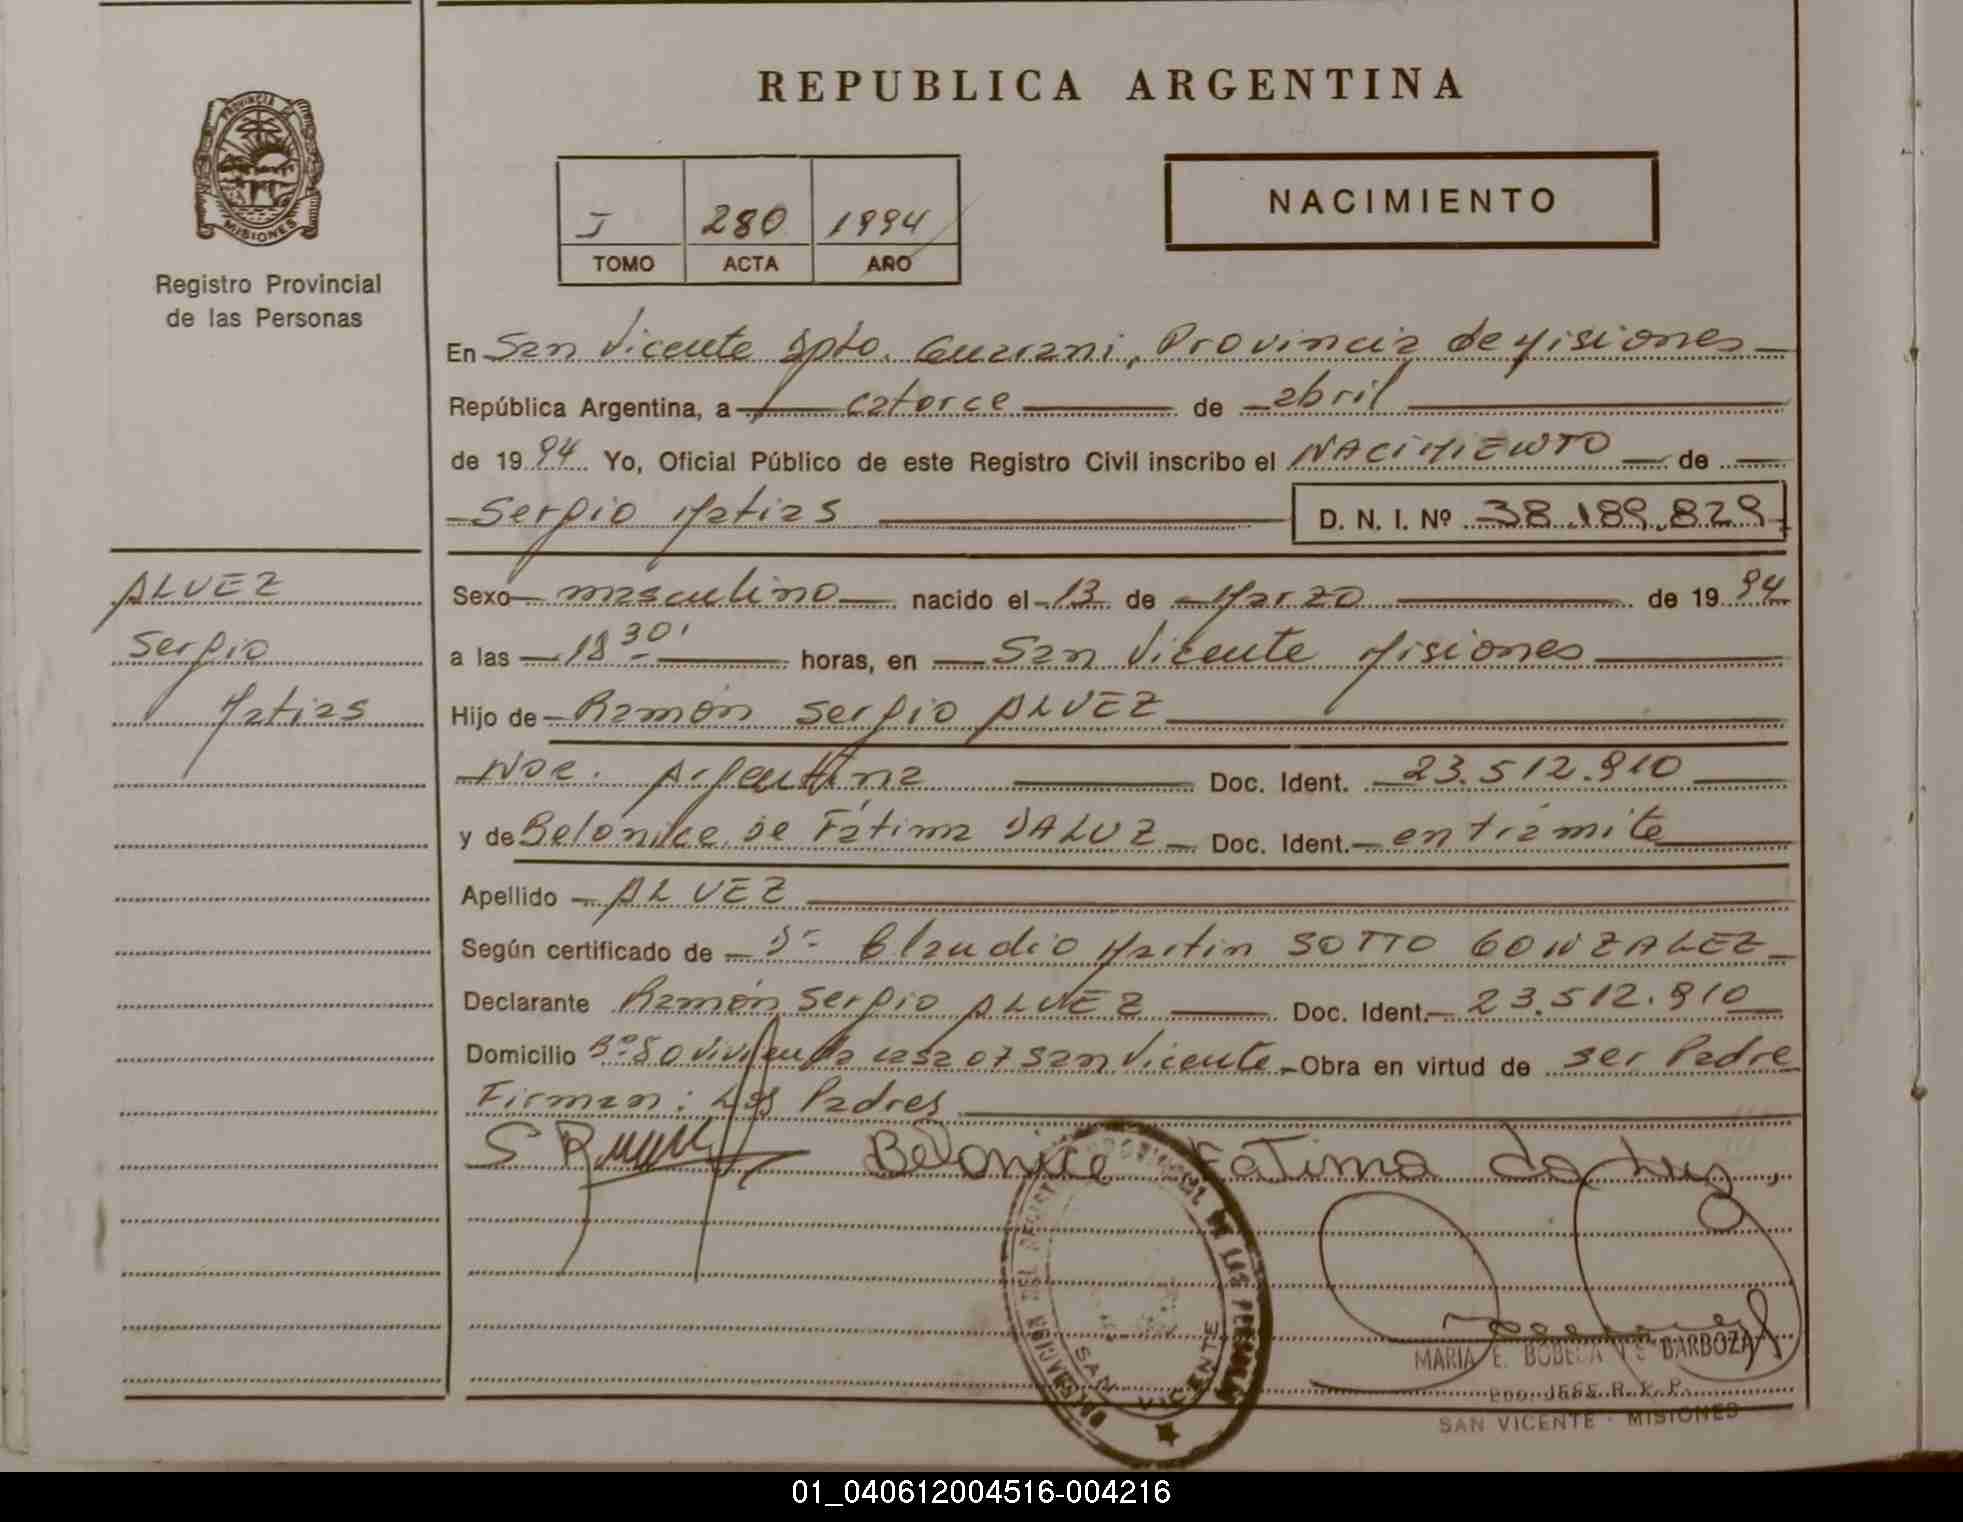 REPUBLICA ARGENTINA
PROVINCIA DE
MISIONES
Registro Provincial
de las Personas
NACIMIENTO
I 280 1994
TOMO ACTA AÑO
En San Vicente Dpto. Guarani, Provincia de Misiones
República Argentina, a catorce de abril
de 1994 Yo, Oficial Público de este Registro Civil inscribo el NACIMIENTO de
Sergio Matias D. N. I. Nº 38.189.829
ALVEZ
Sergio
Matias
Sexo masculino nacido el 13 de Marzo de 1994
a las 18 30' horas, en San Vicente Misiones
Hijo de Ramón Sergio ALVEZ
Nac. Argentina Doc. Ident. 23.512.910
y de Belonice de Fátima DALUZ Doc. Ident. en trámite
Apellido ALVEZ
Según certificado de Dr Claudio Martin SOTTO GONZALEZ
Declarante Ramón Sergio ALVEZ Doc. Ident. 23.512.910
Domicilio Bº 80 vivienda casa 07 San Vicente Obra en virtud de ser Padre
Firman: Los Padres
Belonice Fatima da Luz
DE LAS PERSONAS
SAN VICENTE
MARIA E. BARBOZA
SAN VICENTE - MISIONES
01_040612004516-004216